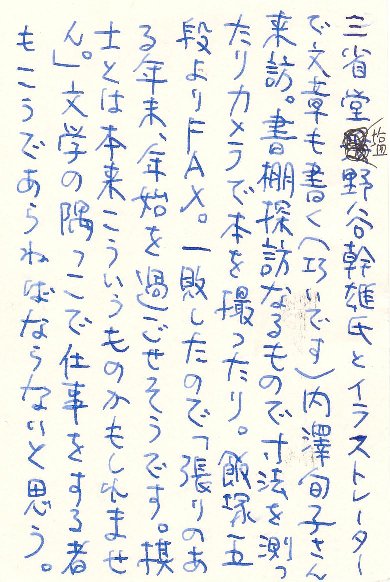 三省堂塩野谷幹雄氏とイラストレーター
で文章も書く(巧いです)内澤旬子さん
来訪。書棚探訪なるもので寸法を測っ
たりカメラで本を撮ったり。飯塚五
段よりFAX。一敗したので「張りのあ
る年末、年始を過ごせそうです。棋
士とは本来こういうものかもしれませ
ん。」文学の隅っこで仕事をする者
もこうであらねばならないと思う。